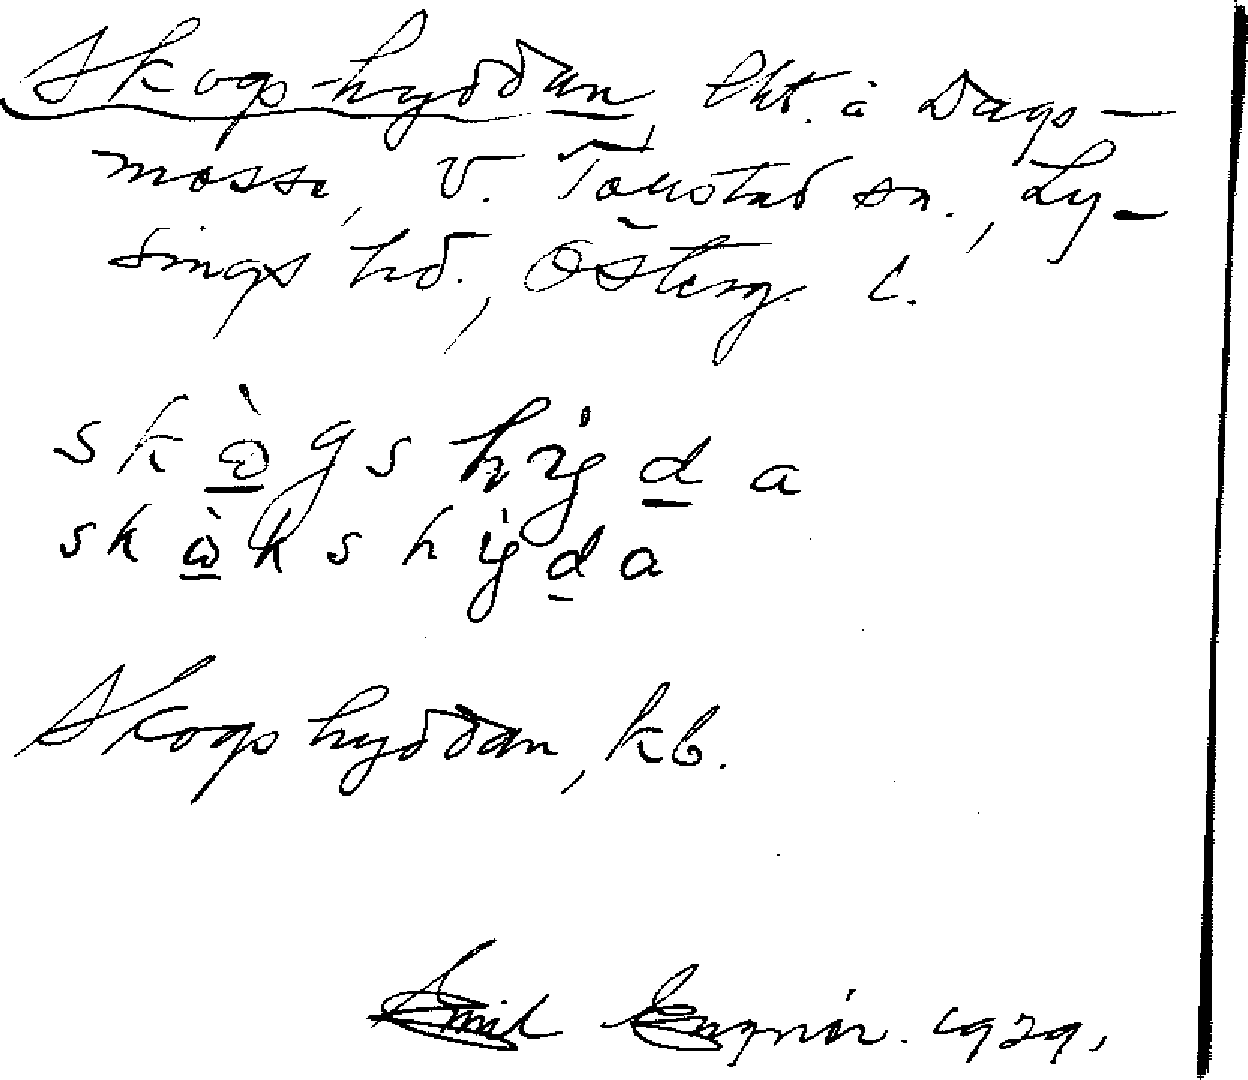 Skogs-hyddan, lht. å Dags-
mosse, V. Tollstad sn., Ly-
sings hd., Österg. l.
skògshýda
skòkshýda
Skogshyddan, kb.
Emil 1929.